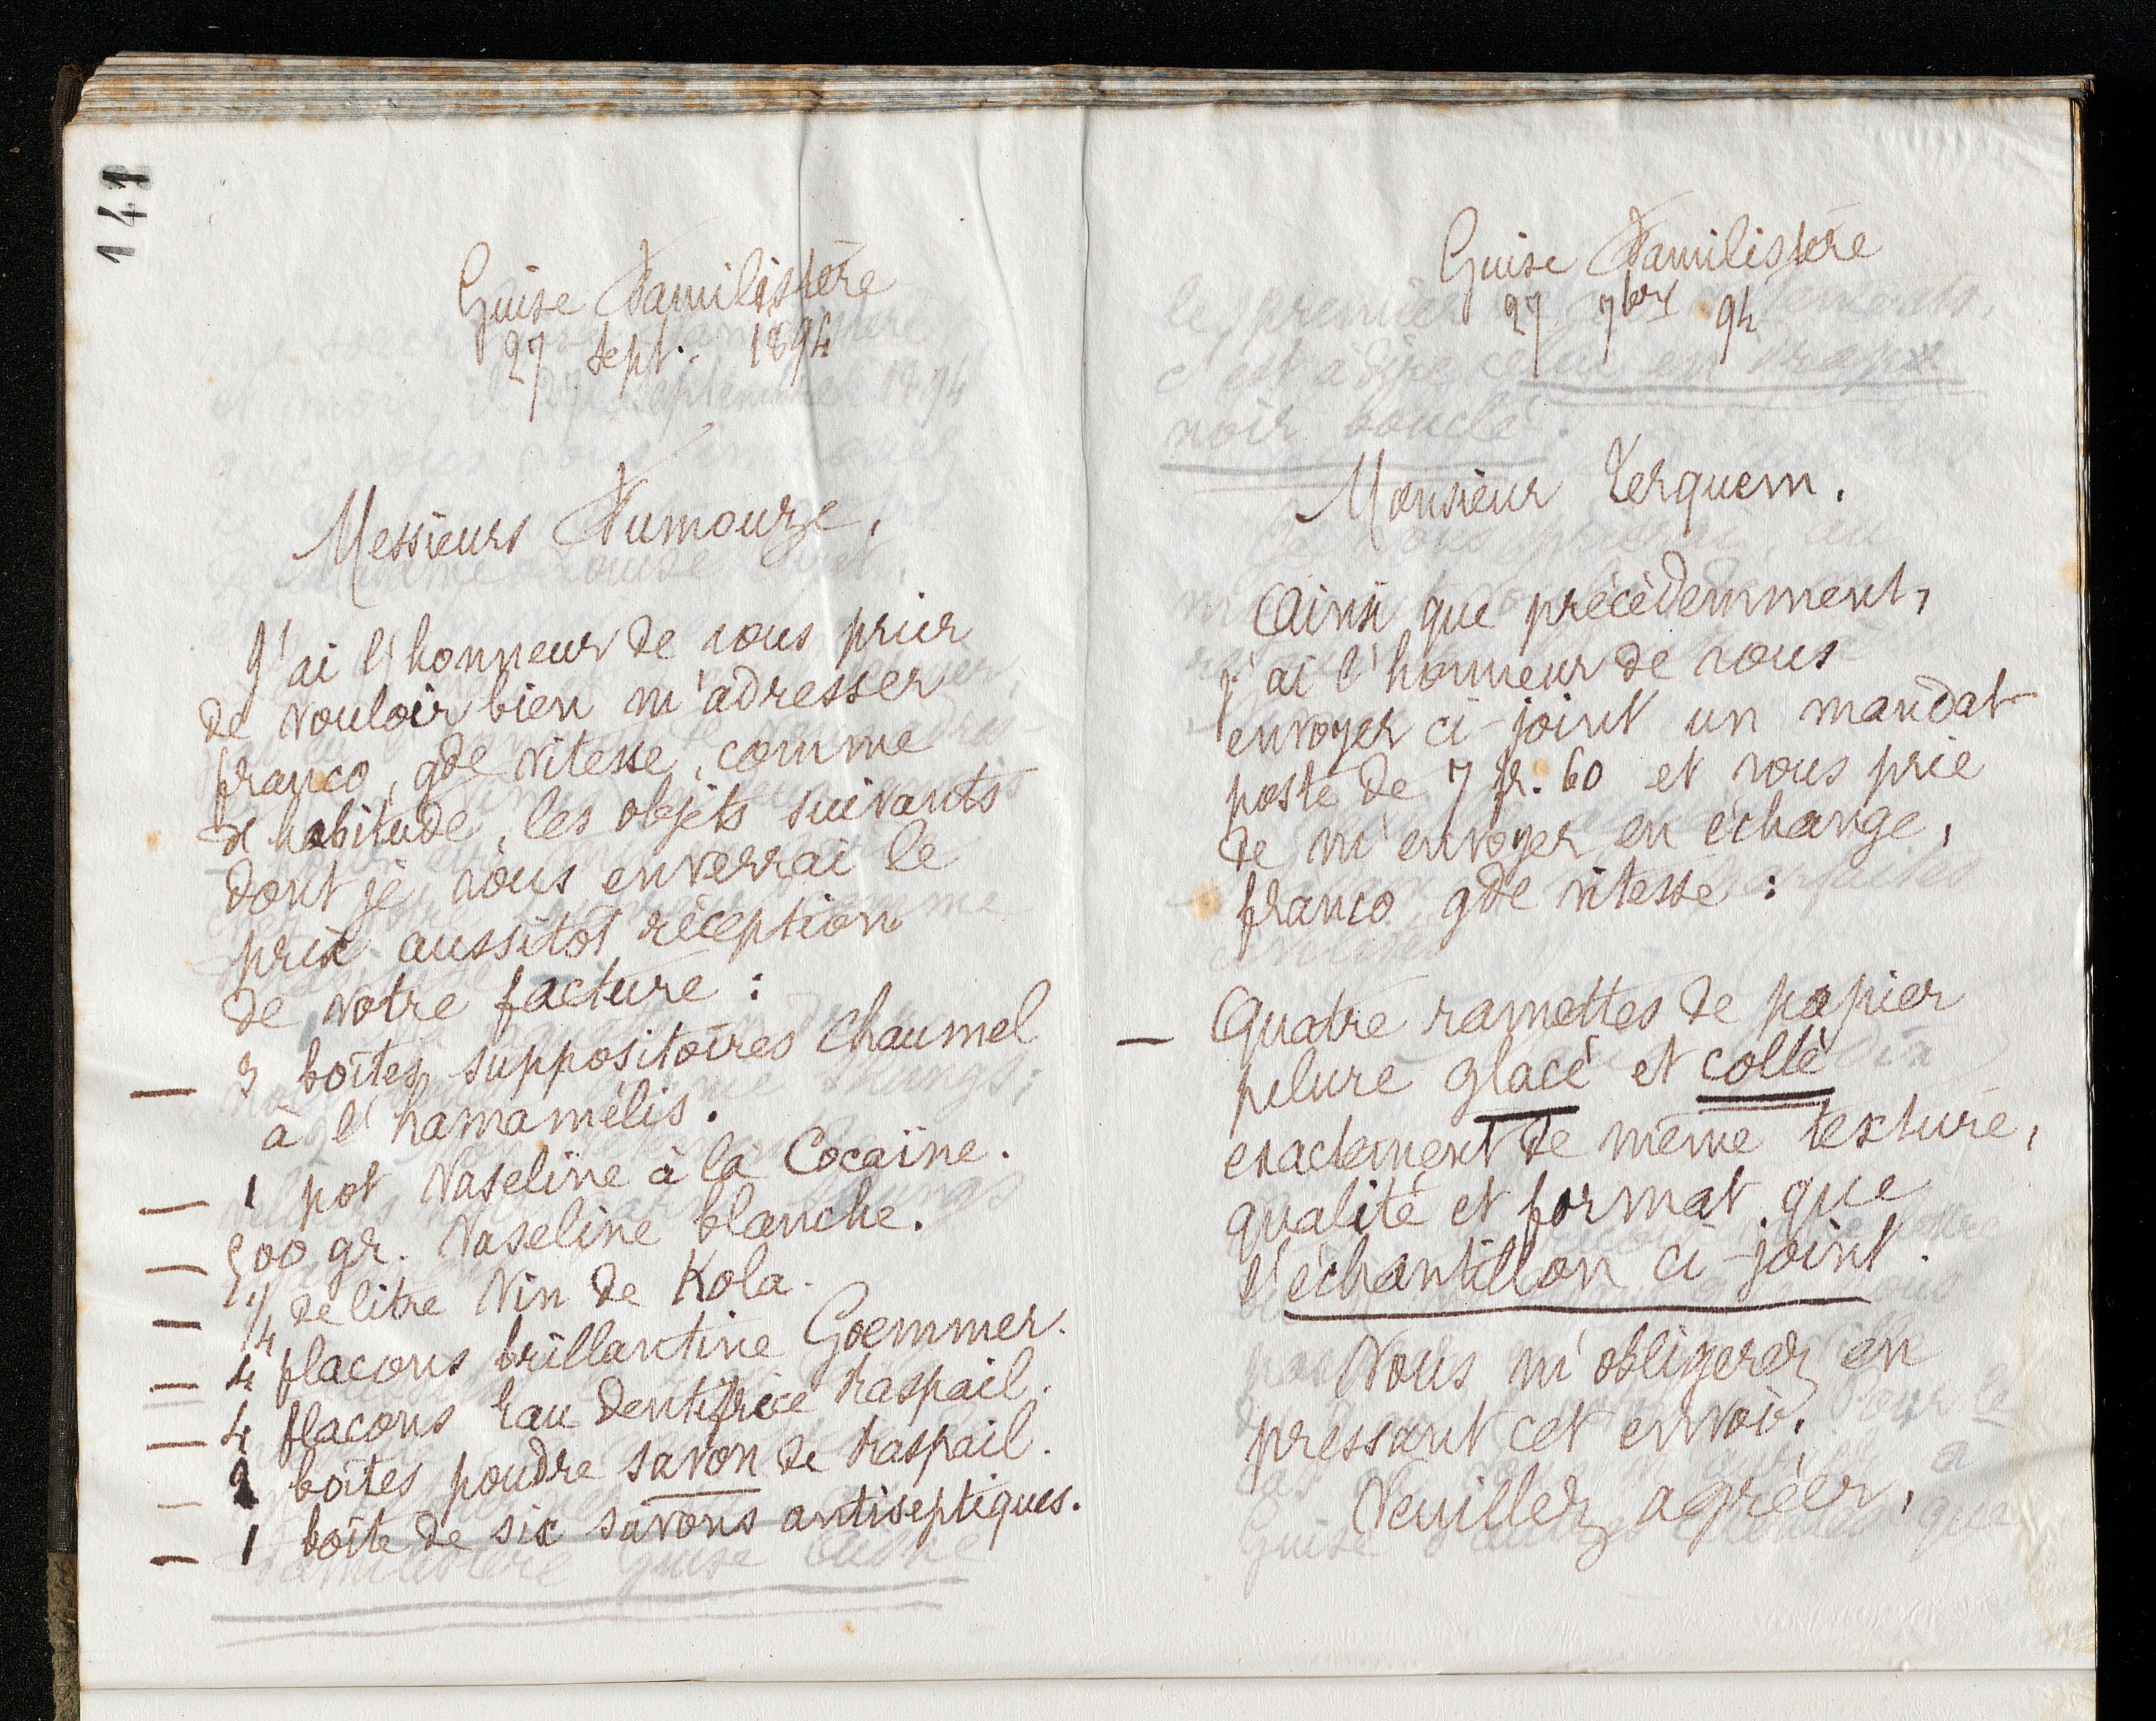 141
Guise Familistère
27 sept. 1894
Messieurs Fumouze,
J'ai l'honneur de vous prier
de vouloir bien m'adresser
franco, gde vitesse, comme
d'habitude, les objets suivants
dont je vous enverrai le
prix aussitôt réception
de votre facture :
— 3 boîtes suppositoires Chaumel
à l'hamamélis.
— 1 pot Vaseline à la Cocaïne.
— 500 gr. Vaseline blanche.
— 1/4 de litre Vin de Kola.
— 4 flacons brillantine Goemmer.
— 4 flacons Eau dentifrice Raspail.
— 2 boîtes poudre savon de Raspail.
— 1 boîte de six savons antiseptiques.
Guise Familistère
27 7bre 94
Monsieur Terquem.
Ainsi que précédemment,
j'ai l'honneur de vous
envoyer ci-joint un mandat
poste de 7 fr. 60 et vous prie
de m'envoyer en échange,
franco gde vitesse :
— Quatre ramettes de papier
pelure glacé et collé
exactement de même texture,
qualité et format que
l'échantillon ci-joint.
Vous m'obligerez en
pressant cet envoi.
Veuillez agréer,